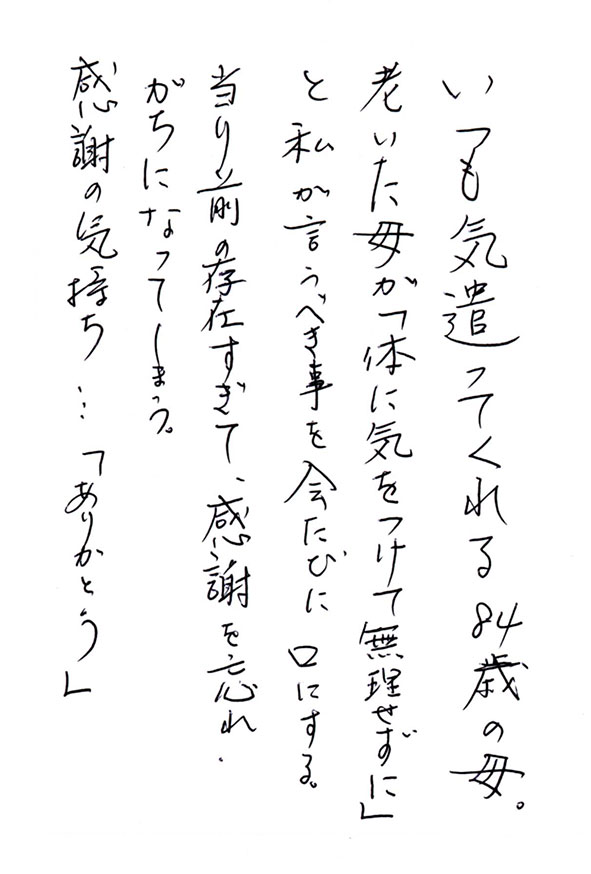 いつも気遣ってくれる84歳の母。
老いた母が「体に気をつけて無理せずに」
と私が言うべき事を会たびに口にする。
当り前の存在すぎて、感謝を忘れ
がちになってしまう。
感謝の気持ち…「ありがとう」